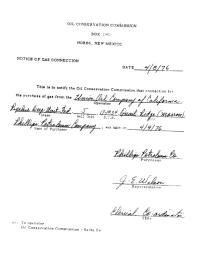 OIL CONSERVATION COMMISSION
BOX
HOBBS, NEW MEXICO
NOTICE OF GAS CONNECTION
DATE 4/8/76
This is to notify the Oil Conservation Commission that connection for
the purchase of gas from the Union Oil Company of California
Operator
Lease
Phillips Petroleum Company, was made on 4/9/76
Name of Purchaser
Phillips Petroleum Co.
J. E. Wilson
Representative
Clerical Coordinator
Title
cc: To operator
Oil Conservation Commission - Santa Fe